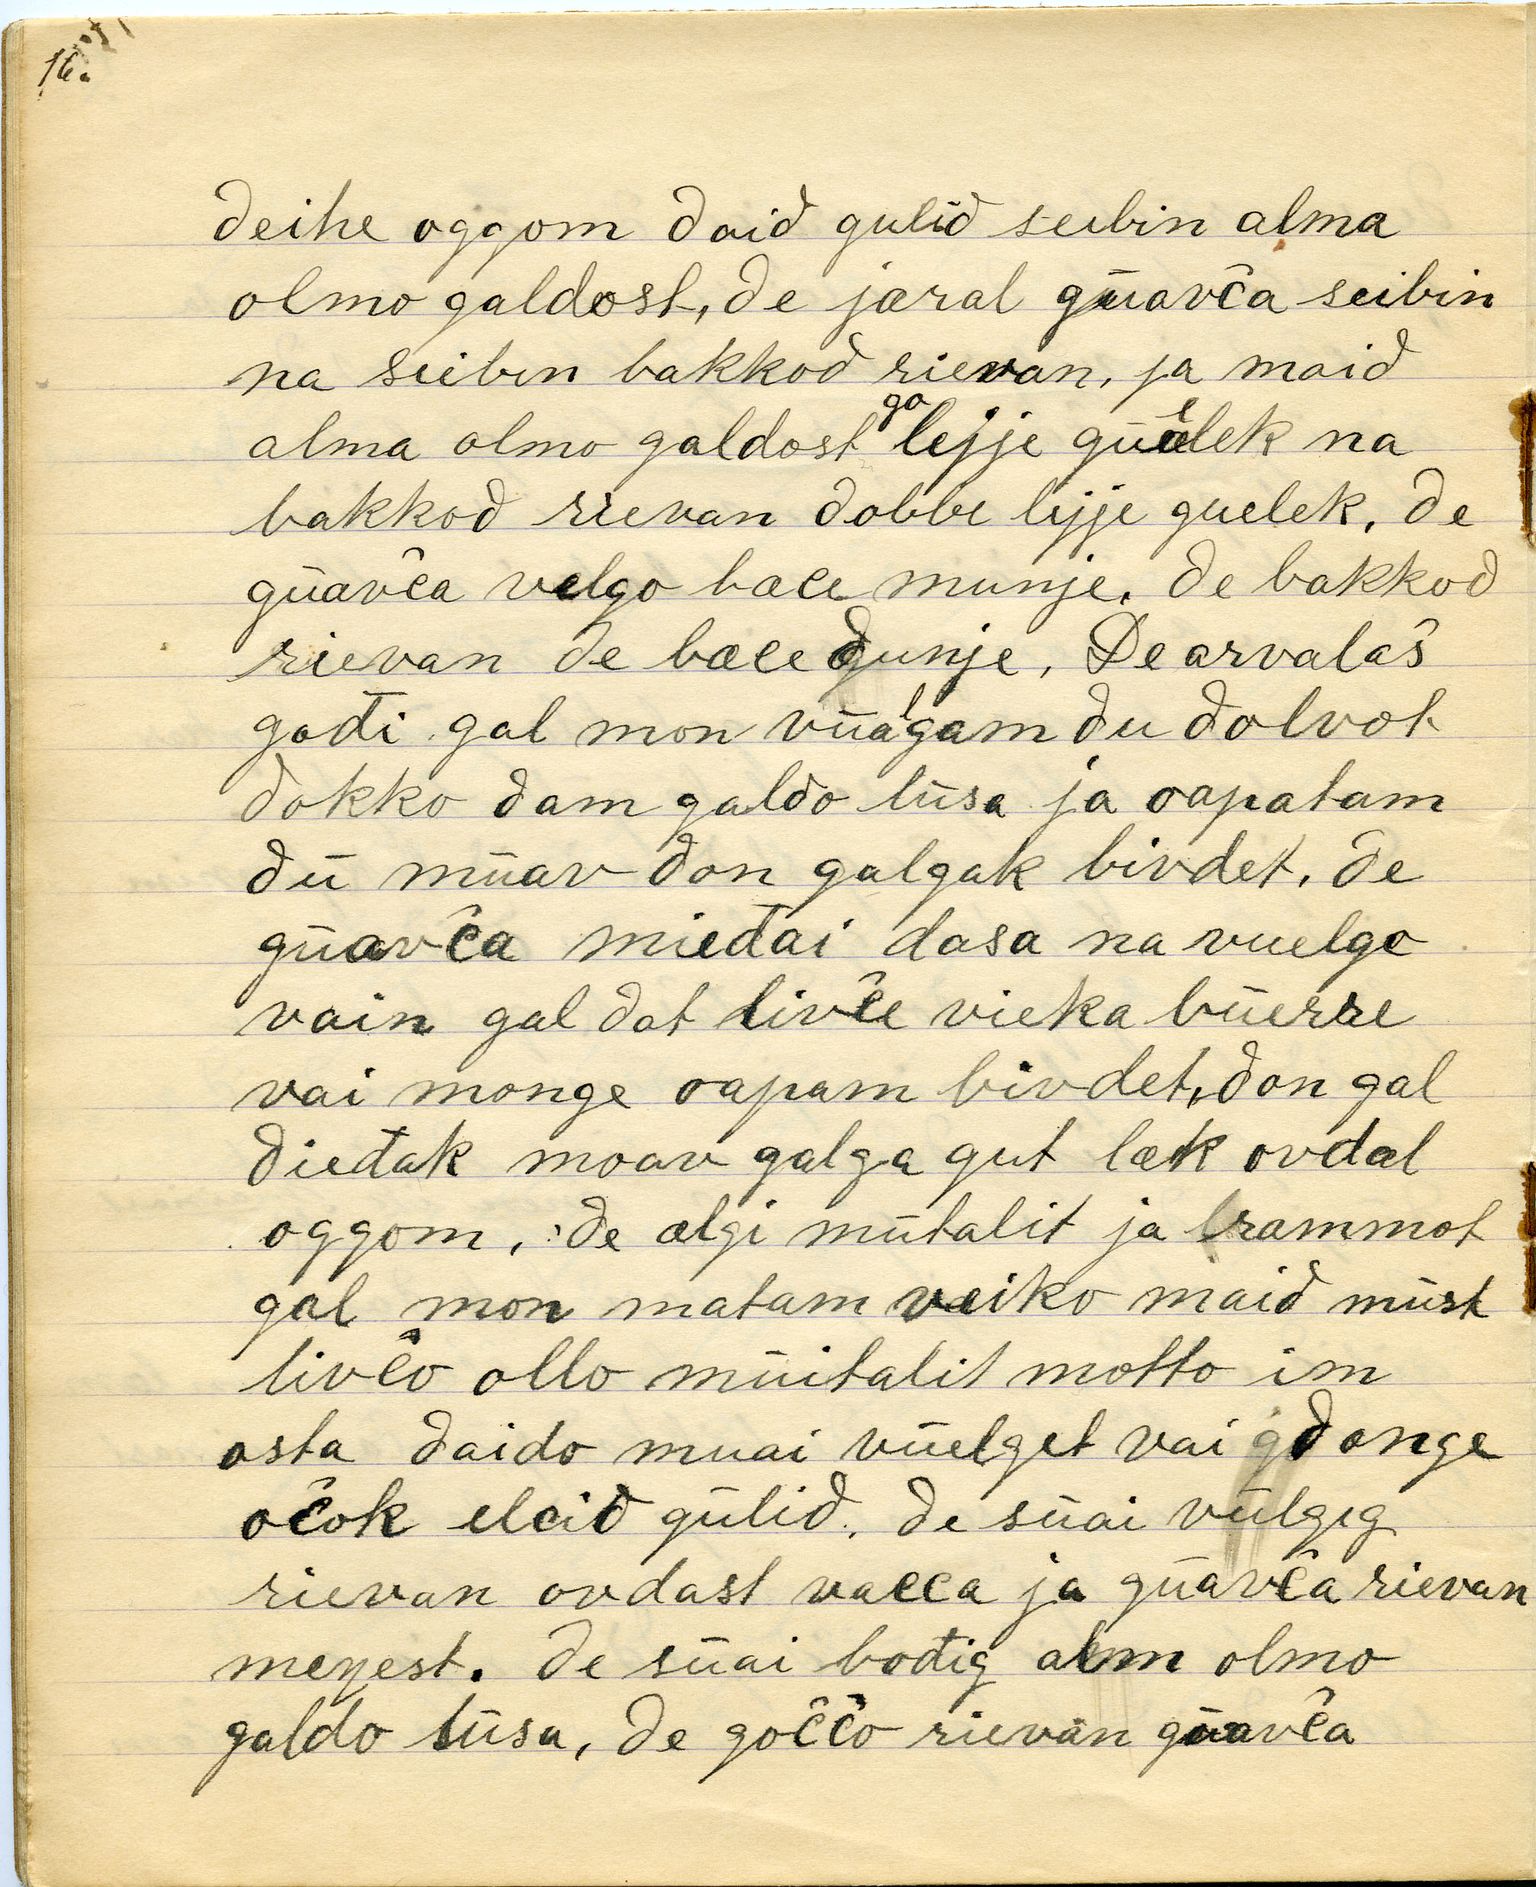 16.
deihe oggom daid gulid seibin alma
olmo galdost, de jaral gūavĉa seibin
na seibin bakkod rievan, ja maid
alma olmo galdost go lejje gūelek na
bakkod rievan dobbe lejje guelek. de
gūavĉa velgo bæce munje. de bakkod
rievan de bæce dunje. De arvalaŝ
gođi gal mon vūalgam du dolvot
dokko dam galdo lūsa ja oapatam
dū mūav don galgak bivdet. de
gūavĉa mieđai dasa na vuelgo
vain gal dat livĉe vieka būerre
vai monge oapam bivdet, don gal
dieđak moav galga gut læk ovdal
oggom. de ælgi mūtalit ja rammot
gal mon matam veiko maid mūst
livĉo ollo mūitalit motto im
asta daido muai vūelget vai donge
oĉok eleid gūlid. de sūai vūlgig
rievan ovdast vacca ja gūavĉa rievan
meŋest. de sūai bođig alm olmo
galdo lūsa, de goĉĉo rievan gūavĉa